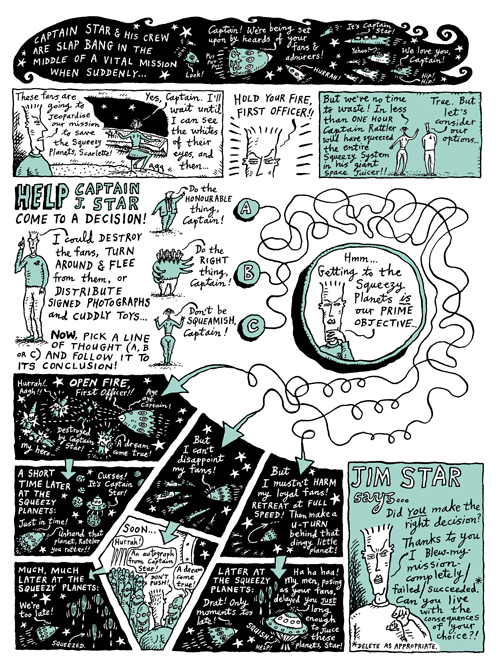 CAPTAIN STAR & HIS CREW
ARE SLAP BANG IN THE
MIDDLE OF A VITAL MISSION
WHEN SUDDENLY...
Captain! We're being set
upon by hoards of your
fans & admirers!
Look!
It's Captain
Star!
Yahoo!
HURRAH!
We love you,
Captain!
Hip!
Hip!
These fans are
going to
jeopardise
our mission
to save
the Squeezy
Planets, Scarlette!
Yes, Captain. I'll
wait until
I can see
the whites
of their
eyes, and
then...
HOLD YOUR FIRE,
FIRST OFFICER!!
But we've no time
to waste! In less
than ONE HOUR
Captain Rattler
will have squeezed
the entire
Squeezy System
in his giant
space Juicer!!
True. But
let's
consider
our
options...
HELP CAPTAIN
J. STAR
COME TO A DECISION!
I could DESTROY
the fans, TURN
AROUND & FLEE
from them, or
DISTRIBUTE
SIGNED PHOTOGRAPHS
and CUDDLY TOYS...
NOW, PICK A LINE
OF THOUGHT (A, B
or C) AND FOLLOW IT TO
ITS CONCLUSION!
Do the
HONOURABLE
thing,
Captain!
Do the
RIGHT
thing,
Captain!
Don't be
SQUEAMISH,
Captain!
A
B
C
Hmm...
Getting to the
Squeezy
Planets is
our PRIME
OBJECTIVE...
OPEN FIRE,
First Officer!!
Hurrah!
Aagh!!
Aye
aye,
Captain!
Destroyed
by Captain
Star!
my hero...
A dream
come true!
But
I can't
disappoint
my fans!
But
I mustn't HARM
my loyal fans!
RETREAT at FULL
SPEED! Then make a
U-TURN
behind that
dingy, little
planet!
A SHORT
TIME LATER
AT THE
SQUEEZY
PLANETS:
Curses!
It's Captain
Star!
Just in time!
Unhand that
planet, Rattler
you ratter!!
SOON...
Hurrah!
An autograph
from Captain
Star!
DON'T
PUSH!
A dream
come
true!
MUCH, MUCH
LATER AT THE
SQUEEZY PLANETS:
We're
too late!
SQUEEZED.
LATER AT
THE SQUEEZY
PLANETS:
Drat! Only
moments too
late!
Ha ha haa!
My men, posing
as your fans,
delayed you just
long
enough
to juice
these
planets, Star!
SQUISH!
HELP!
JIM STAR
says...
Did you make the
right decision?
Thanks to you
I Blew my
mission
completely/
failed/succeeded.*
Can you live
with the
consequences
of your
choice?!
*DELETE AS APPROPRIATE.